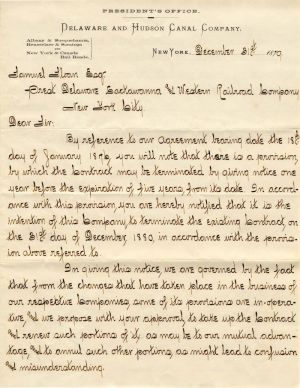 PRESIDENT'S OFFICE.
DELAWARE AND HUDSON CANAL COMPANY.
Albany & Susquehanna,
Rensselaer & Saratoga
and
New York & Canada
Rail Roads.
NEW YORK, December 31st 1879
Samuel Sloan Esq.
Prest Delaware Lackawanna & Western Railroad Company
New York City.
Dear Sir:
By reference to our agreement bearing date the 18th
day of January 1876, you will note that there is a provision
by which the Contract may be terminated by giving notice one
year before the expiration of five years, from its date. In accord-
ance with this provision you are hereby notified that it is the
intention of this Company to terminate the existing Contract, on
the 31st day of December, 1880, in accordance with the provis-
ion above referred to.
In giving this notice, we are governed by the fact
that from the changes that have taken place in the business of
our respective Companies, some of its provisions are in-opera-
tive, & we propose with your approval, to take up the Contract
& renew such portions of it, as may be to our mutual advan-
tage, & to annul such other portions, as might lead to confusion
& misunderstanding.